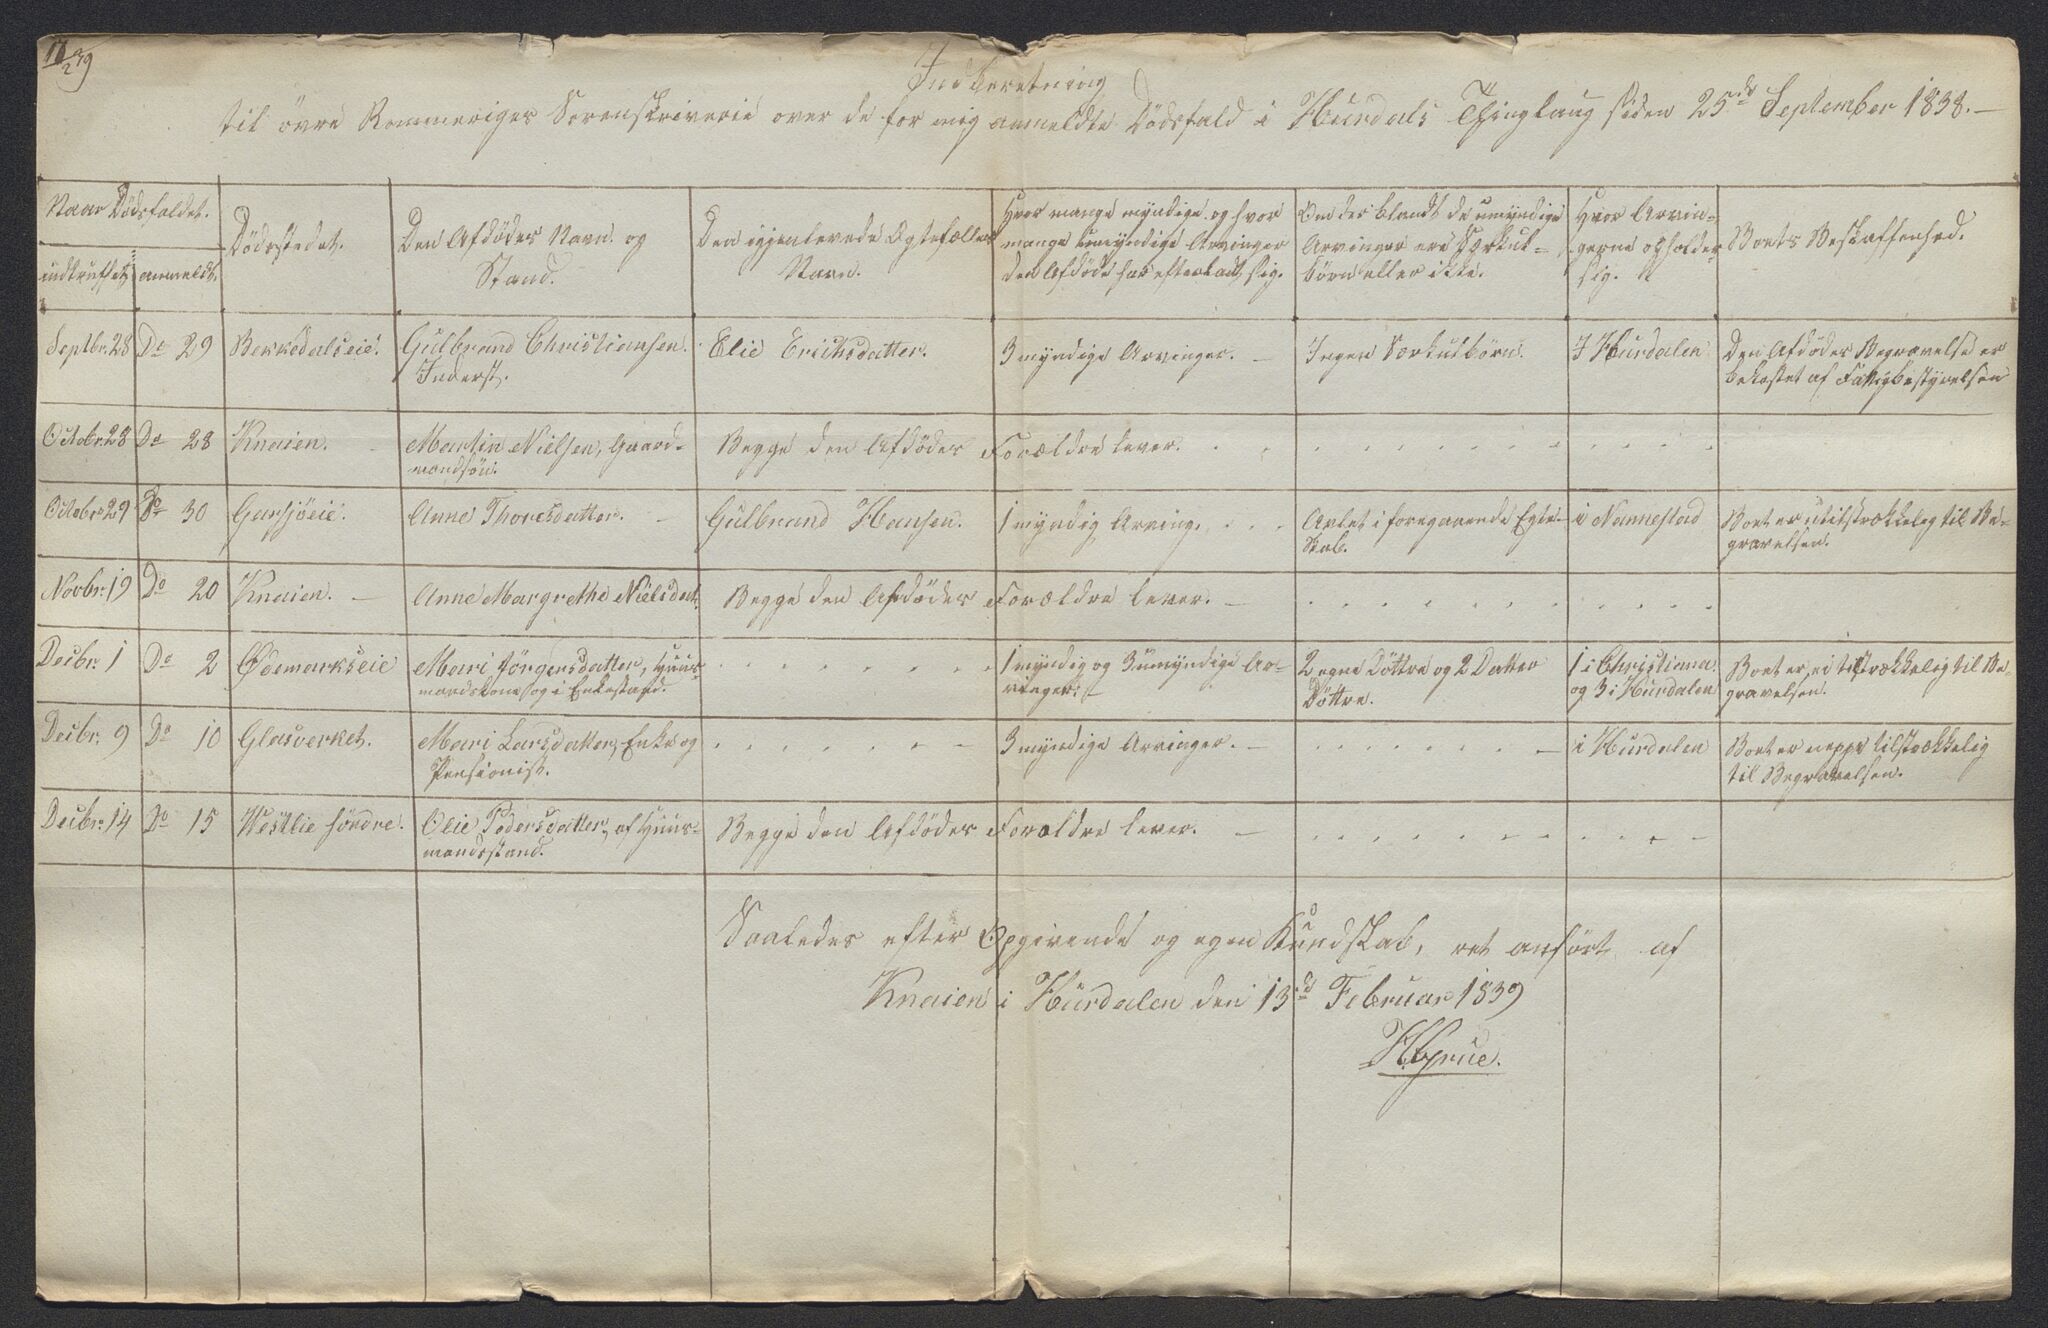 17/2 39
Indberetning
til övre Rommeriges Sorenskriverie over de for mig anmeldte Dödsfald i Hurdals Thinglaug siden 25de September 1838.
Naar Dödsfaldet.
indtruffet, anmeldt.
Dödsstedet.
Den Afdödes Navn og
Stand.
Den igjenlevende Ægtefælles
Navn.
Hvor mange myndige og hvor
mange umyndige Arvinger
den Afdöde har efterladt sig.
Om der blandt de umyndige
Arvinger ere Særkul-
börn eller ikke.
Hvor Arvin-
gerne opholder
sig.
Boets Beskaffenhed.
Septbr. 28 Do 29 Bekkedalseie. Gulbrand Christiansen. Elie Ericksdatter. 3 myndige Arvinger. – Ingen Særkulbörn. I Hurdalen Den Afdödes Begravelse er
Inderst. bekostet af Fattigbestyrelsen
Octobr. 28 Do 28 Knaien. Martin Nielsen, Gaard- Begge den Afdödes Forældre lever.
mandsön.
Octobr. 29 Do 30 Garsjöeie. Anne Thoresdatter. – Gulbrand Hansen. 1 myndig Arving. Avlet i foregaaende Egte- i Nannestad Boet er utilstrækkelig til Be-
skab. gravelsen.
Novbr. 19 Do 20 Knaien. – Anne Margrethe Nielsdat. Begge den Afdödes Forældre lever. –
Decbr. 1 Do 2 Ødemarkseie Mari Jörgensdatter, Huus- 1 myndig og 3 umyndige Ar- 2 egne Döttre og 2 Datter 1 i Christiana Boet er ei tilstrækkelig til Be-
mandskone og i Enkestand. vinger. – Döttre. og 3 i Hurdalen gravelsen.
Decbr. 9 Do 10 Glasverket. Mari Larsdatter, Enke og 3 myndige Arvinger. – i Hurdalen Boet er neppe tilstrækkelig
Pensionist. til Begravelsen.
Decbr. 14 Do 15 Westlie söndre. Olie Pedersdatter, af Huus- Begge den Afdödes Forældre lever. –
mandsstand.
Saaledes efter Opgivende og egen Kundskab, ret anfört af
Knaien i Hurdalen den 13de Februar 1839